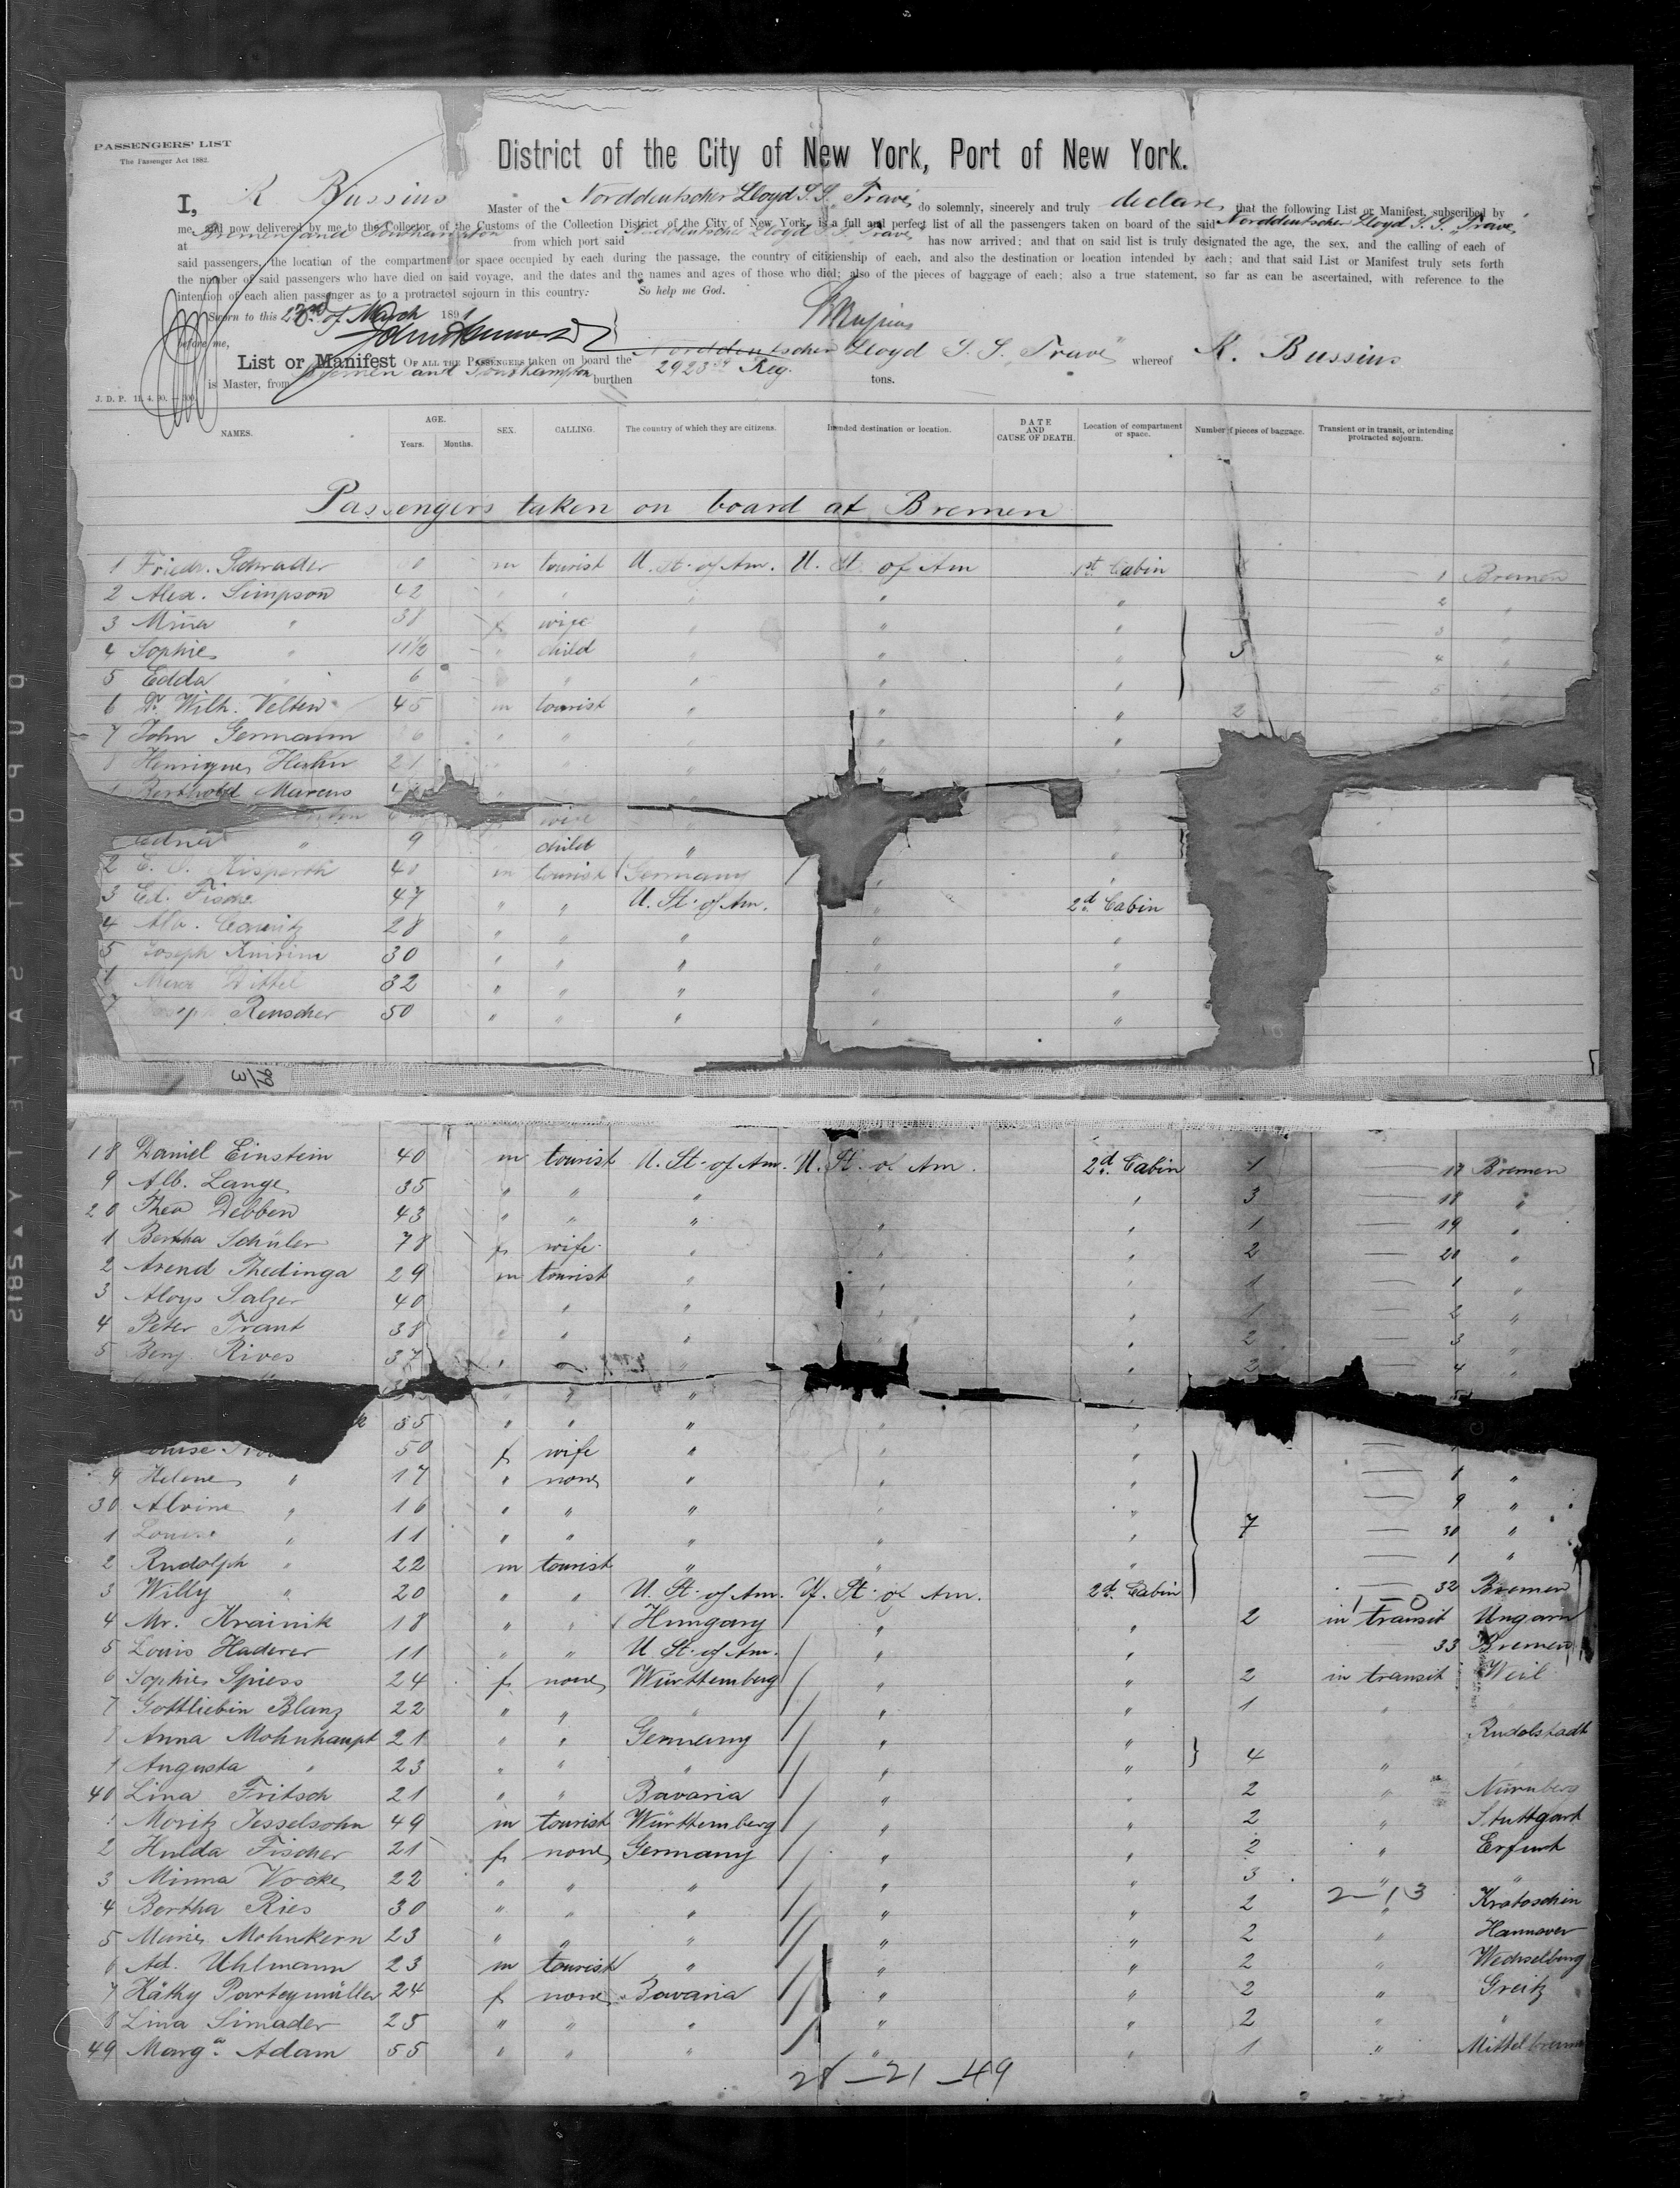 PASSENGERS' LIST
The Passenger Act 1882.
District of the City of New York, Port of New York.
I, R Bussius Master of the Norddeutscher Lloyd S.S. "Trave" do solemnly, sincerely and truly declare that the following List or Manifest, subscribed by
me, and now delivered by me to the Collector of the Customs of the Collection District of the City of New York, is a full and perfect list of all the passengers taken on board of the said Norddeutscher Lloyd S.S. "Trave"
at Bremen and Southampton from which port said Norddeutscher Lloyd S.S. Trave has now arrived; and that on said list is truly designated the age, the sex, and the calling of each of
said passengers, the location of the compartment or space occupied by each during the passage, the country of citizienship of each, and also the destination or location intended by each; and that said List or Manifest truly sets forth
the number of said passengers who have died on said voyage, and the dates and the names and ages of those who died; also of the pieces of baggage of each; also a true statement, so far as can be ascertained, with reference to the
intention of each alien passenger as to a protracted sojourn in this country. So help me God.
Sworn to this 23rd of March 1891
before me,
List or Manifest OF ALL THE PASSENGERS taken on board the Norddeutscher Lloyd S.S. "Trave" whereof K. Bussius
is Master, from Bremen and Southampton burthen 2928 Reg. tons.
J. D. P. 11. 4. 90. 300.
NAMES. AGE. Years. Months. SEX. CALLING. The country of which they are citizens. Intended destination or location. DATE AND CAUSE OF DEATH. Location of compartment or space. Number of pieces of baggage. Transient or in transit, or intending protracted sojourn.
Passengers taken on board at Bremen
1 Friedr. Schrader m tourist U. St. of Am. U. St. of Am 1st Cabin — 1 Bremen
2 Alex. Simpson 42 " " " " " 2 "
3 Mina " 38 f wife " " " — 3 "
4 Sophie " 11½ " child " " " 5 — 4 "
5 Edda " 6 " " " " " — 5 "
6 Dr. Wilh. Velten 45 m tourist " " " 2
7 John Germann " " " " "
8 Henriques Hahn 21 " " " "
Berthold Marcus "
wife "
Edna " 9 child " "
2 E. Kisperth 40 m tourist Germany / " "
3 Ed. Fische 47 " " U. St. of Am. " 2d. Cabin
4 Alb. 28 " " " " "
5 Joseph 30 " " " " "
32 " " " " "
7 Joseph Renscher 50 " " " " "
18 Daniel Einstein 40 m tourist U. St. of Am. U. St. of Am. 2d. Cabin 1 — 17 Bremen
9 Alb. Lange 35 " " " " 3 — 18 "
20 Theo Debben 43 " " " " " 1 — 19 "
1 Bertha Schüler 78 f wife " " " 2 — 20 "
2 Arend Thedinga 29 m tourist " " " 1 — 1 "
3 Aloys Salzer 40 " " " " 1 — 2 "
4 Peter Trant 38 " " " " " 2 — 3 "
5 Benj. Rives 37 " " " " 2 — 4 "
" " " " 5
35 " " " " "
Louise 50 f wife " " " —
9 Helene " 17 " none " " " — "
30 Alvine " 16 " " " " — 9 "
1 Louise " 11 " " " " 7 — 30 "
2 Rudolph " 22 m tourist " " " — 1 "
3 Willy " 20 " " U. St. of Am. U. St. of Am. 2d. Cabin — 32 Bremen
4 Mr. Krainik 18 " " Hungary " " 2 in transit Ungarn
5 Louis Haderer 11 " " U. St. of Am. / " " 33 Bremen
6 Sophie Spiess 24 f none Württemberg / " " 2 in transit Weil
7 Gottliebin Blanz 22 " " " / " " 1 "
8 Anna Mohnhaupt 21 " " Germany / " " Rudolstadt
9 Augusta " 23 " " " / " " 4 " "
40 Lina Fritsch 21 " " Bavaria / " " 2 " Nürnberg
1 Moritz Jesselsohn 49 m tourist Württemberg / " " 2 " Stuttgart
2 Hulda Fischer 21 f none Germany / " " 2 " Erfurt
3 Minna Vocke 22 " " " / " " 3 " "
2–13
4 Bertha Ries 30 " " " / " " 2 " Krotoschin
5 Marie Mohnkern 23 " " " / " " 2 " Hannover
6 Ad. Uhlmann 23 m tourist " / " " 2 " Wechselburg
7 Käthy Parteymüller 24 f none Bavaria / " " 2 " Greitz
8 Lina Simader 25 " " " / " " 2 " "
49 Marga. Adam 55 " " " / " " 1 "
28–21–49